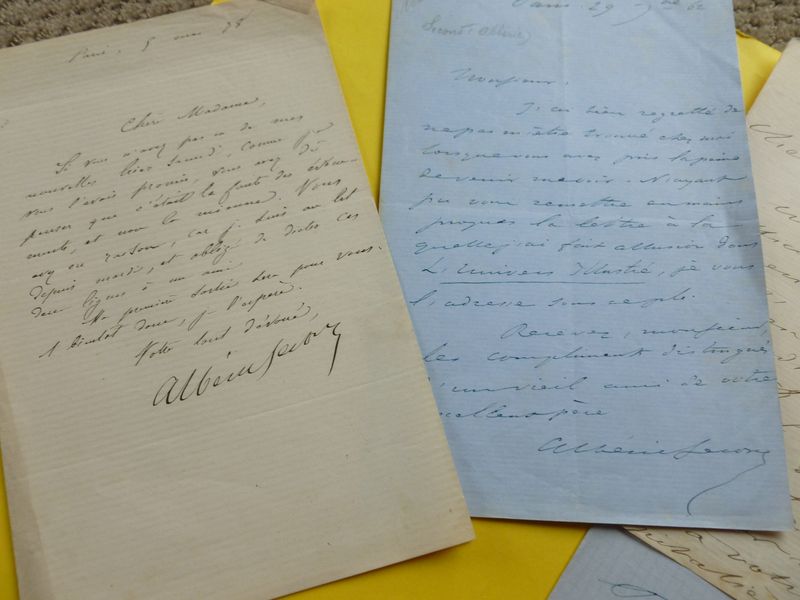 Paris, 5 mai 78
Chère Madame,
Si vous n'avez pas eu de mes
nouvelles hier Samedi, comme je
vous l'avais promis, vous avez dû
penser que c'était la faute des événe-
ments, et non la mienne. Vous
avez eu raison, car je suis au lit
depuis mardi, et obligé de dicter ces
deux lignes à un ami.
Ma première sortie sera pour vous.
A bientôt donc, je l'espère.
Votre tout dévoué,
Albéric Second
Paris 29
Second (Albéric)
Monsieur,
J'ai bien regretté de
ne pas m'être trouvé chez moi
lorsque vous avez pris la peine
de venir me voir. N'ayant
pu vous remettre en mains
propres la lettre à la
quelle j'ai fait allusion dans
L'Univers Illustré, je vous
l'adresse sous ce pli.
Recevez, monsieur,
les compliments distingués
d'un vieil ami de votre
excellent père
Albéric Second